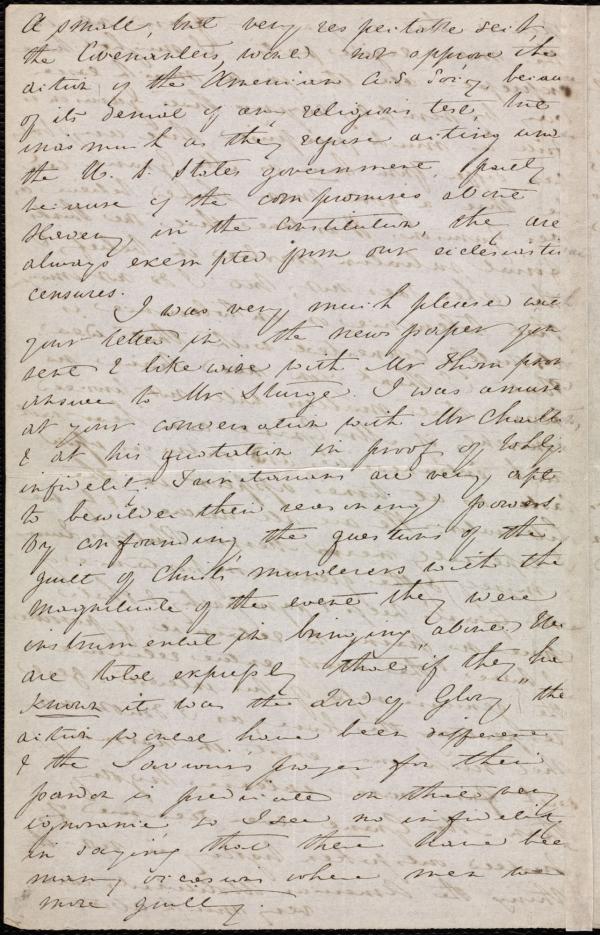 A small, but very respectable sect,
the Covenanters, would not approve the
action of the American A S Soc'y, because
of its denial of any religious test, but
inasmuch as they refuse acting under
the U. S. States government, partly
because of the compromises about
Slavery in the Constitution, they are
always exempted from our ecclesiastic
censures.
I was very much pleased with
your letter in the newspaper you
sent & likewise with Mr Thompson
answer to Mr Sturge. I was amused
at your conversation with Mr
& at his quotation in proof of
infidelity. Trinitarians are very apt
to bewilder their reasoning powers
by confounding the questions of the
guilt of Christ's murderers with the
magnitude of the event they were
instrumental in bringing about. We
are told expressly "that if they had
known it was the Lord of Glory," the
action would have been different
& the Saviour's prayer for their
pardon is predicated on their very
ignorance, so I see no infidelity
in saying that there have been
many occasions where men were
more guilty.